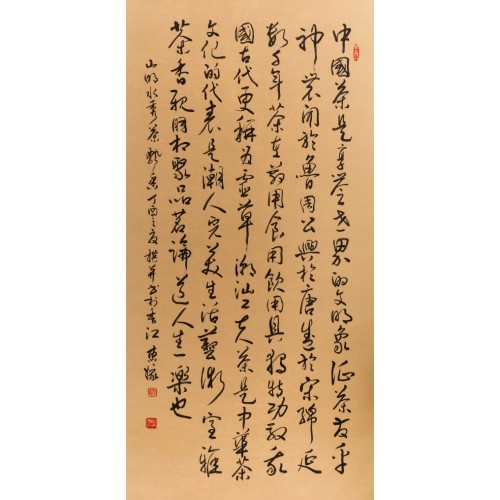 中國茶是享誉世界的文明象征茶发乎
神農闻於魯周公興於唐盛於宋綿延
數千年茶在药用食用飲用具獨特功效我
國古代更稱为靈草潮汕工夫茶是中華茶
文化的代表是潮人完美生活藝術室雅
茶香親朋相聚品茗論道人生一樂也
山明水秀茶飄香丁酉之夏撰并书於香江